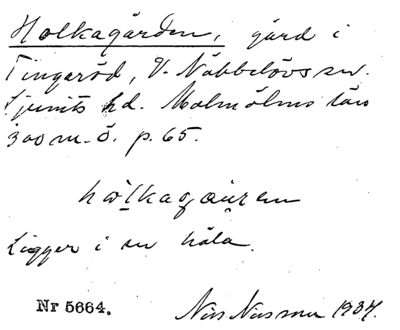 Holkagården, gård i
Tingaröd, V. Nöbbelövs sn.
Ljunits hd. Malmöhus län
300 m. ö. p. 65.
Ligger i en håla.
Nr 5664. Nils Nilsson 1937.